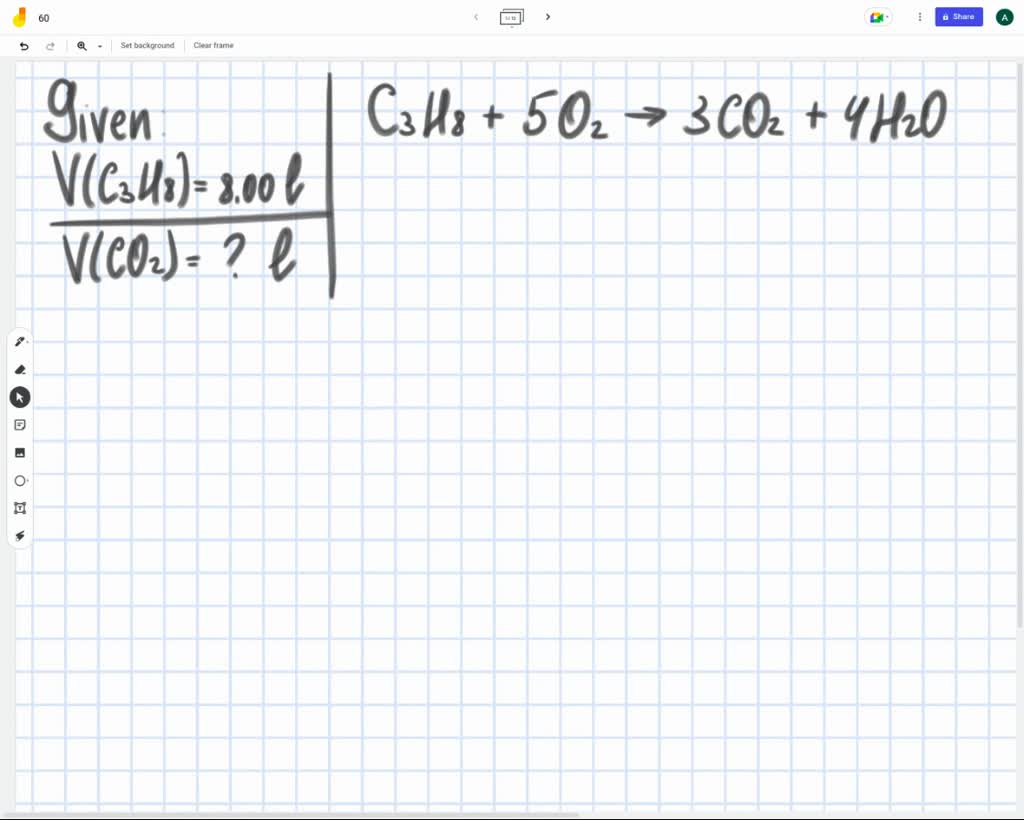 60
1/12
Share
A
Set background
Clear frame
Given:
V(C₃H₈) = 8.00 l
V(CO₂) = ? l
C₃H₈ + 5O₂ → 3CO₂ + 4H₂O